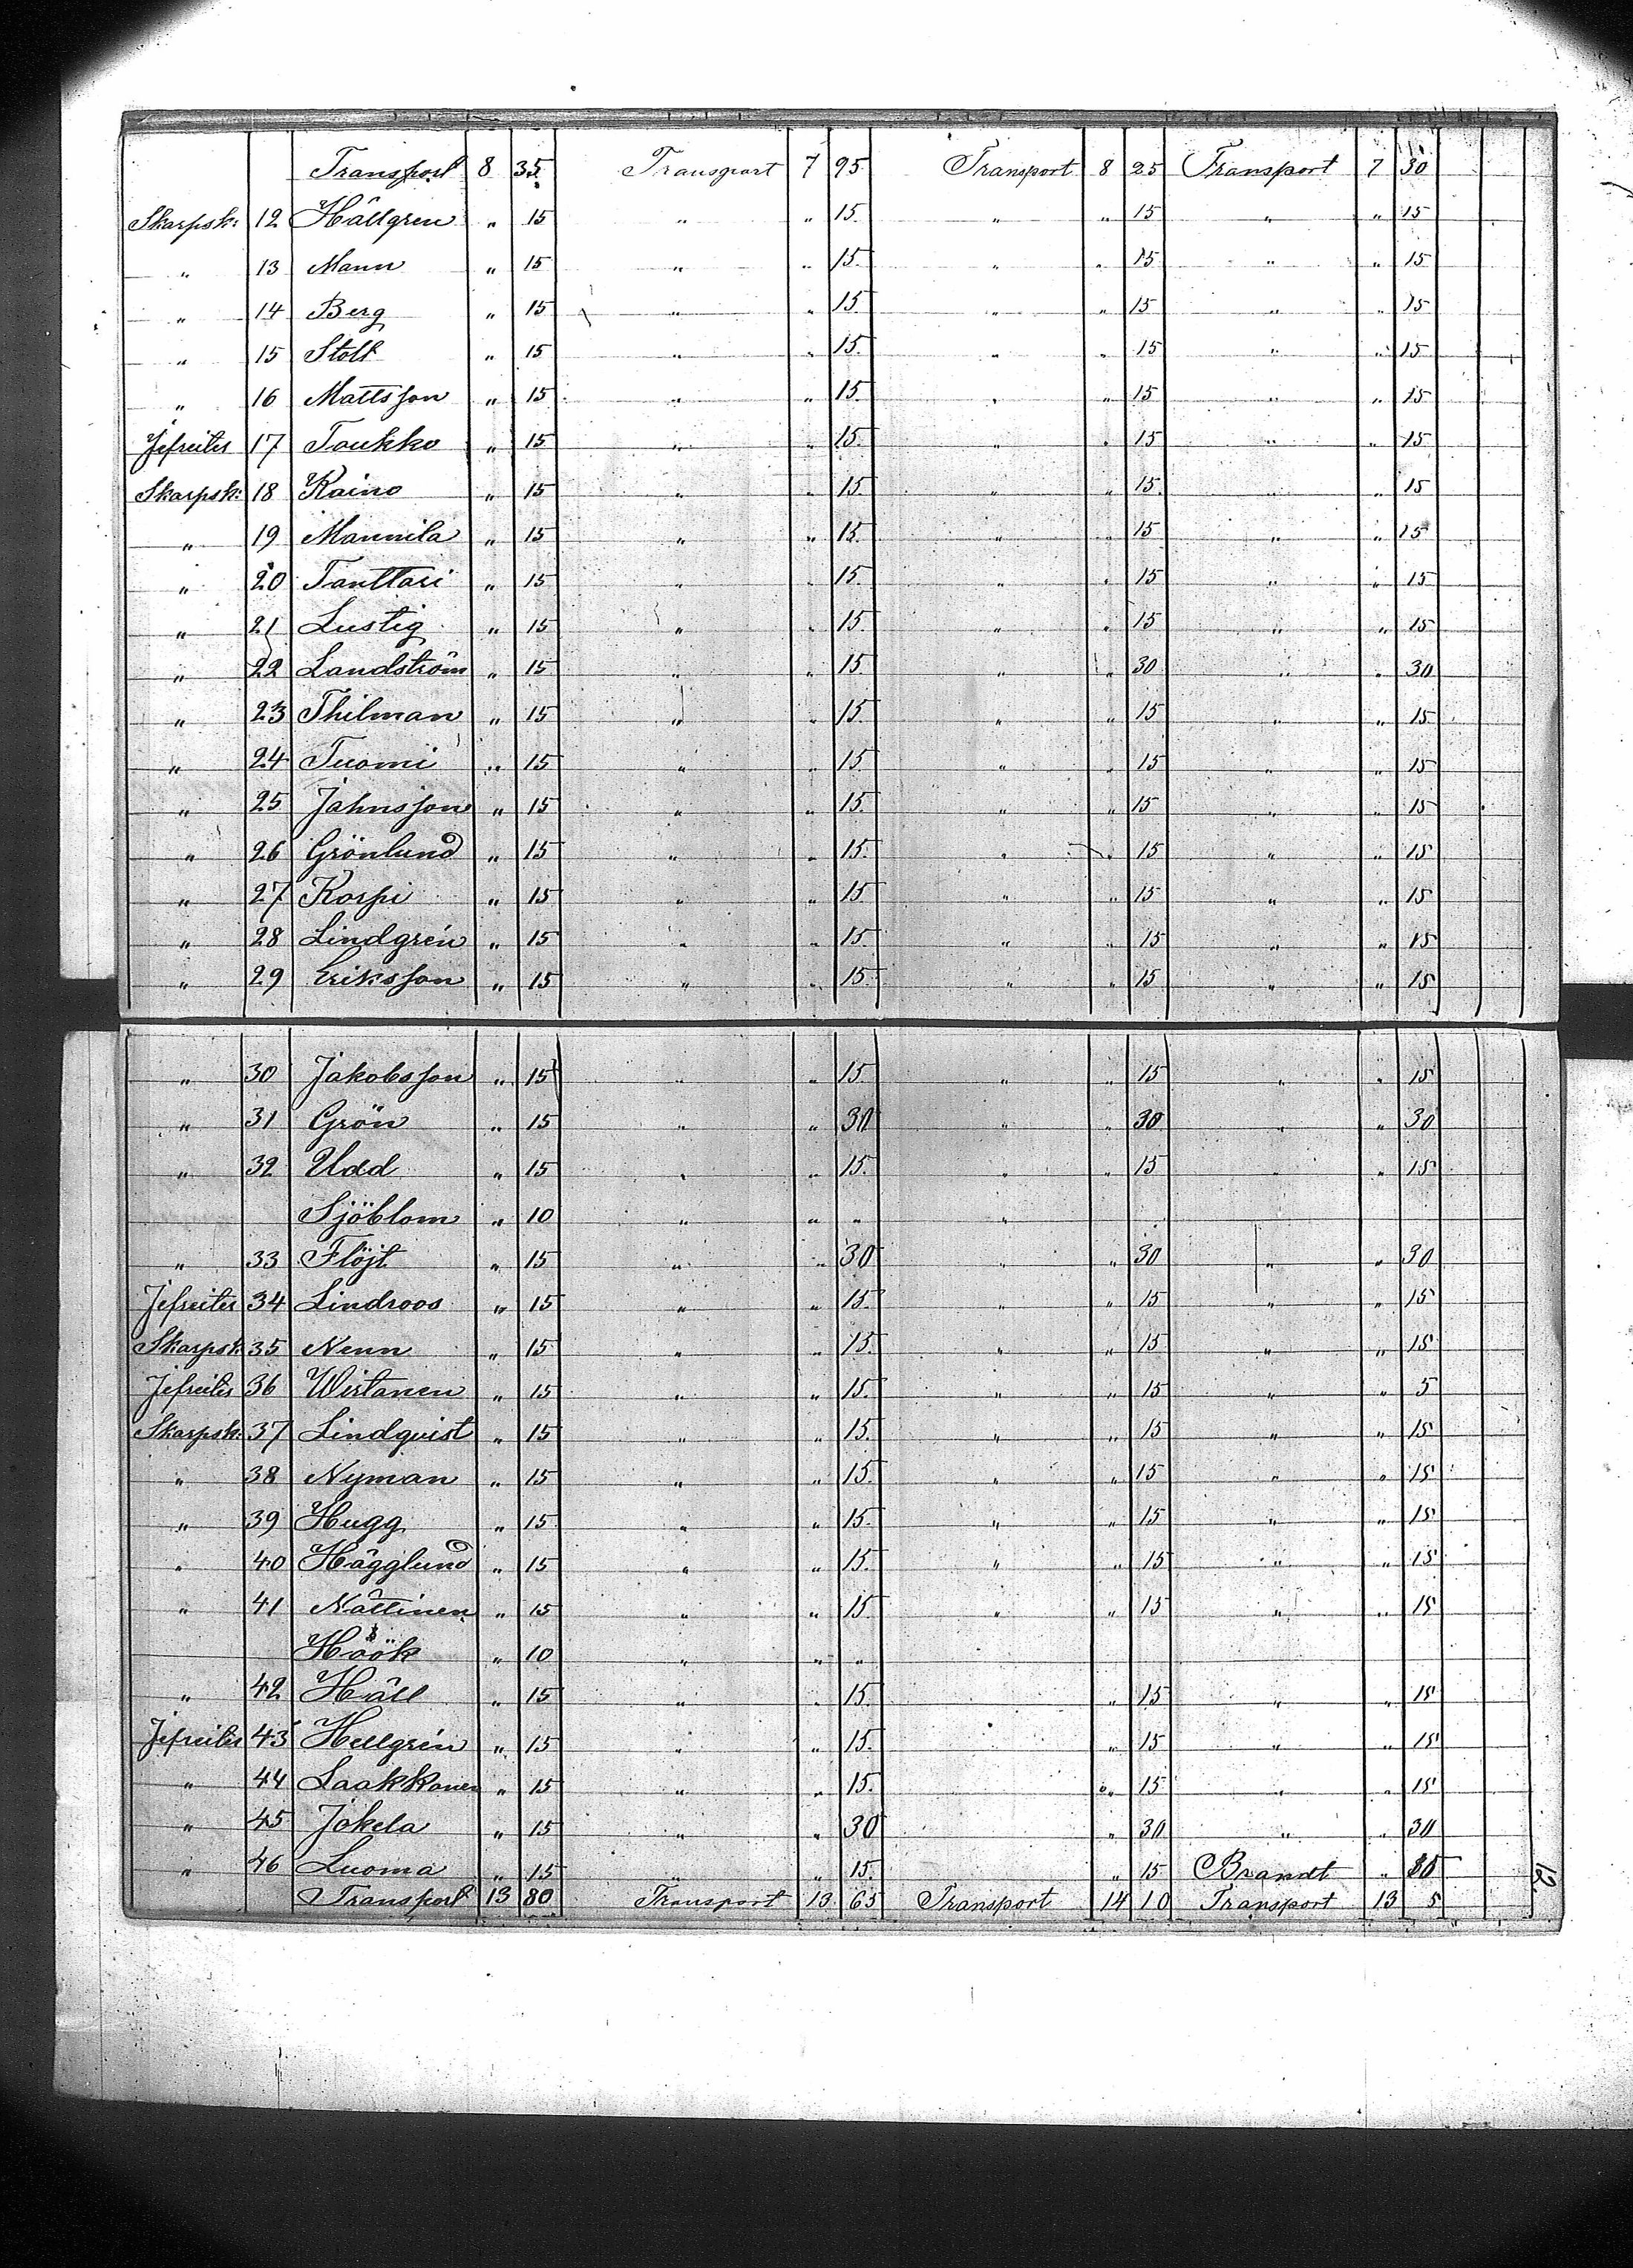 Transport 8 35 Transport 7 95 Transport 8 25 Transport 7 30
Skarpsk: 12 Hällgren " 15 " " 15 " " 15 " " 15
" 13 Mann " 15 " " 15 " " 15 " " 15
" 14 Berg " 15 " " 15 " " 15 " " 15
" 15 Stolt " 15 " " 15 " " 15 " " 15
" 16 Mattsson " 15 " " 15 " " 15 " " 15
Jefreiter 17 Toukko " 15 " " 15 " " 15 " " 15
Skarpsk: 18 Kaino " 15 " " 15 " " 15 " " 15
" 19 Mannila " 15 " " 15 " " 15 " " 15
" 20 Tanttari " 15 " " 15 " " 15 " " 15
" 21 Lustig " 15 " " 15 " " 15 " " 15
" 22 Landström " 15 " " 15 " " 30 " " 30
" 23 Thilman " 15 " " 15 " " 15 " " 15
" 24 Tuomi " 15 " " 15 " " 15 " " 15
" 25 Jahnsson " 15 " " 15 " " 15 " " 15
" 26 Grönlund " 15 " " 15 " " 15 " " 15
" 27 Korpi " 15 " " 15 " " 15 " " 15
" 28 Lindgrén " 15 " " 15 " " 15 " " 15
" 29 Eriksson " 15 " " 15 " " 15 " " 15
" 30 Jakobsson " 15 " " 15 " " 15 " " 15
" 31 Grön " 15 " " 30 " " 30 " " 30
" 32 Udd " 15 " " 15 " " 15 " " 15
Sjöblom " 10 " " " "
" 33 Flöjt " 15 " " 30 " " 30 " " 30
Jefreiter 34 Lindroos " 15 " " 15 " " 15 " " 15
Skarpsk: 35 Nenn " 15 " " 15 " " 15 " " 15
Jefreiter 36 Wirtanen " 15 " " 15 " " 15 " " 5
Skarpsk: 37 Lindqvist " 15 " " 15 " " 15 " " 15
" 38 Nyman " 15 " " 15 " " 15 " " 15
" 39 Hugg " 15 " " 15 " " 15 " " 15
" 40 Hägglund " 15 " " 15 " " 15 " " 15
" 41 Nättinen " 15 " " 15 " " 15 " " 15
Höök " 10 " " "
" 42 Häll " 15 " " 15 " 15 " " 15
Jefreiter 43 Hellgrén " 15 " " 15 " 15 " " 15
" 44 Laakkonen " 15 " " 15 " 15 " " 15
" 45 Jokela " 15 " " 30 " 30 " " 30
" 46 Luoma " 15 " " 15 " 15 Brandt "
Transport 13 80 Transport 13 65 Transport 14 10 Transport 13 5
12.